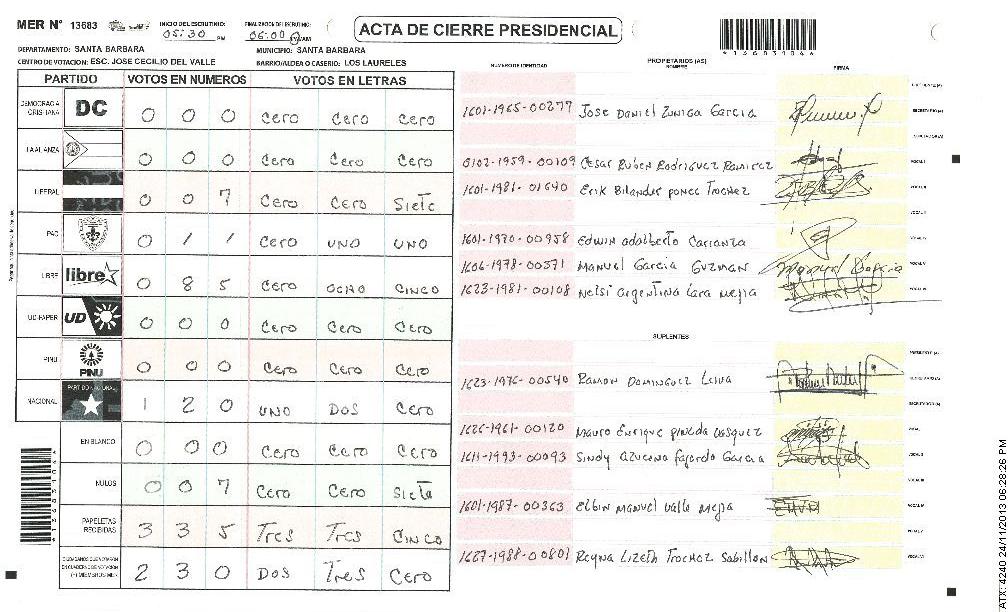 MER N° 13683
INICIO DEL ESCRUTINIO: 05:30 PM
FINALIZACION DEL ESCRUTINIO: 06:00
ACTA DE CIERRE PRESIDENCIAL
4136831044
DEPARTAMENTO: SANTA BARBARA
MUNICIPIO: SANTA BARBARA
CENTRO DE VOTACION: ESC. JOSE CECILIO DEL VALLE
BARRIO/ALDEA O CASERIO: LOS LAURELES
PARTIDO VOTOS EN NUMEROS VOTOS EN LETRAS
DEMOCRACIA CRISTIANA DC 0 0 0 Cero Cero Cero
LA ALIANZA 0 0 0 Cero Cero Cero
LIBERAL 0 0 7 Cero Cero Siete
PAC 0 1 1 Cero UNO UNO
LIBRE libre 0 8 5 Cero OCHO CINCO
UD-FAPER UD 0 0 0 Cero Cero Cero
PINU PINU 0 0 0 Cero Cero Cero
NACIONAL PARTIDO NACIONAL 1 2 0 UNO DOS Cero
EN BLANCO 0 0 0 Cero Cero Cero
NULOS 0 0 7 Cero Cero Siete
PAPELETAS RECIBIDAS 3 3 5 Tres Tres CINCO
2 3 0 DOS Tres Cero
NUMERO DE IDENTIDAD
PROPIETARIOS (AS)
NOMBRE
FIRMA
1601-1965-00277 Jose Daniel Zuniga Garcia
SECRETARIO (A)
0102-1959-00109 Cesar Ruben Rodriguez Ramirez
VOCAL I
1601-1981-01640 Erik Bilander ponce Trochez
VOCAL II
VOCAL III
1601-1970-00958 Edwin adalberto Carranza
VOCAL IV
1606-1978-00371 Manuel Garcia Guzman Manuel Garcia
VOCAL V
1623-1981-00108 Nelsi argentina Lara mejia
VOCAL VI
SUPLENTES
PRESIDENTE (A)
1623-1976-00540 Ramon Dominguez Leiva
SECRETARIO (A)
1626-1961-00120 Mauro Enrique pineda vasquez
VOCAL I
1611-1993-00093 Sindy azucena fajardo Garcia
VOCAL II
VOCAL III
1601-1987-00363 Elbin Manuel valle mejia
VOCAL IV
VOCAL V
1627-1988-00801 Reyna Lizeth Trochez Sabillon
VOCAL VI
ATX: 4240 24/11/2013 06:28:26 PM